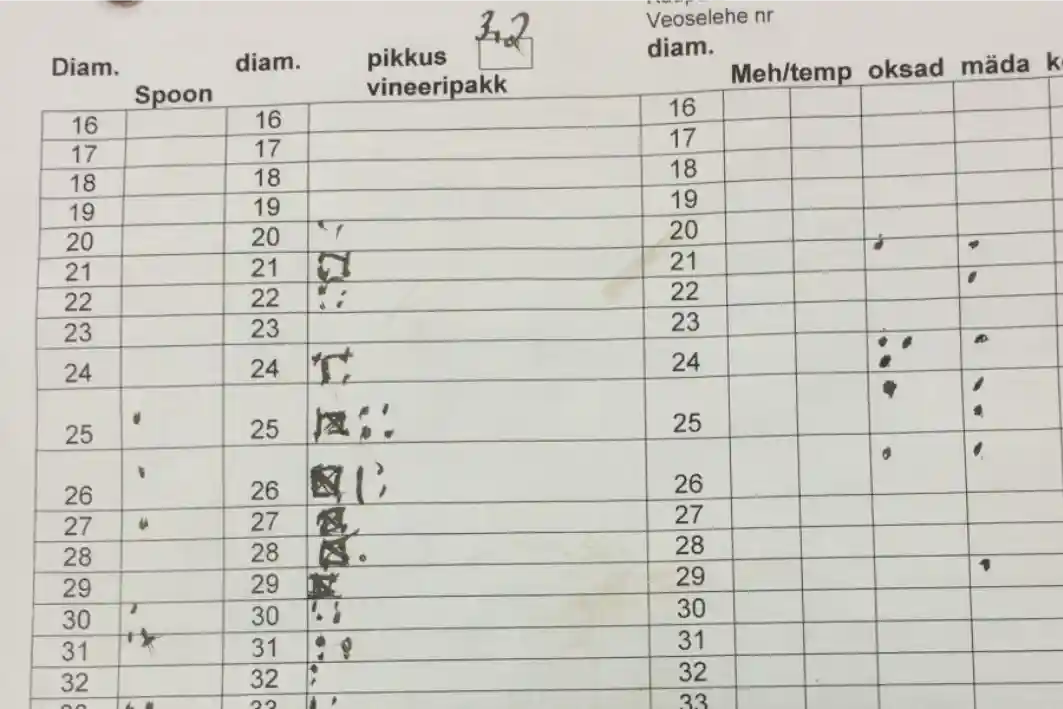 3,2
Veoselehe nr
Diam. diam. pikkus diam.
Spoon vineeripakk Meh/temp oksad mäda
16 16 16
17 17 17
18 18 18
19 19 19
20 20 20
21 21 21
22 22 22
23 23 23
24 24 24
25 25 25
26 26 26
27 27 27
28 28 28
29 29 29
30 30 30
31 31 31
32 32 32
33 33